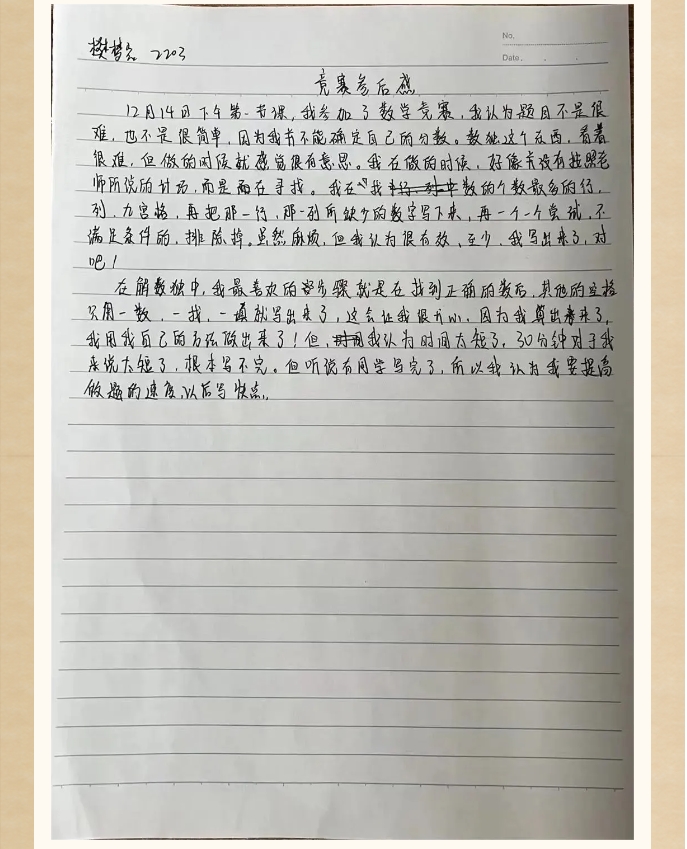 No.
Date.
樊梦 2203
竞赛参后感
12月14日下午第一节课,我参加了数学竞赛,我认为题目不是很
难,也不是很简单,因为我并不能确定自己的分数。数独这个东西,看着
很难,但做的时候就感觉很有意思。我在做的时候,好像并没有按照老
师所说的方法,而是而在寻找。我在"我数的个数最多的行,
列,九宫格,再把那一行,那一列所缺少的数字写下来,再一个一个尝试,不
满足条件的,排除掉。虽然麻烦,但我认为很有效,至少,我写出来了,对
吧!
在解数独中,我最喜欢的步骤就是在找到正确的数后,其他的空格
只用一数,一找,一填就写出来了,这会让我很开心,因为我算出来了,
我用我自己的方法做出来了!但,我认为时间太短了,30分钟对于我
来说太短了,根本写不完。但听说有同学写完了,所以我认为我要提高
做题的速度,以后写快点。